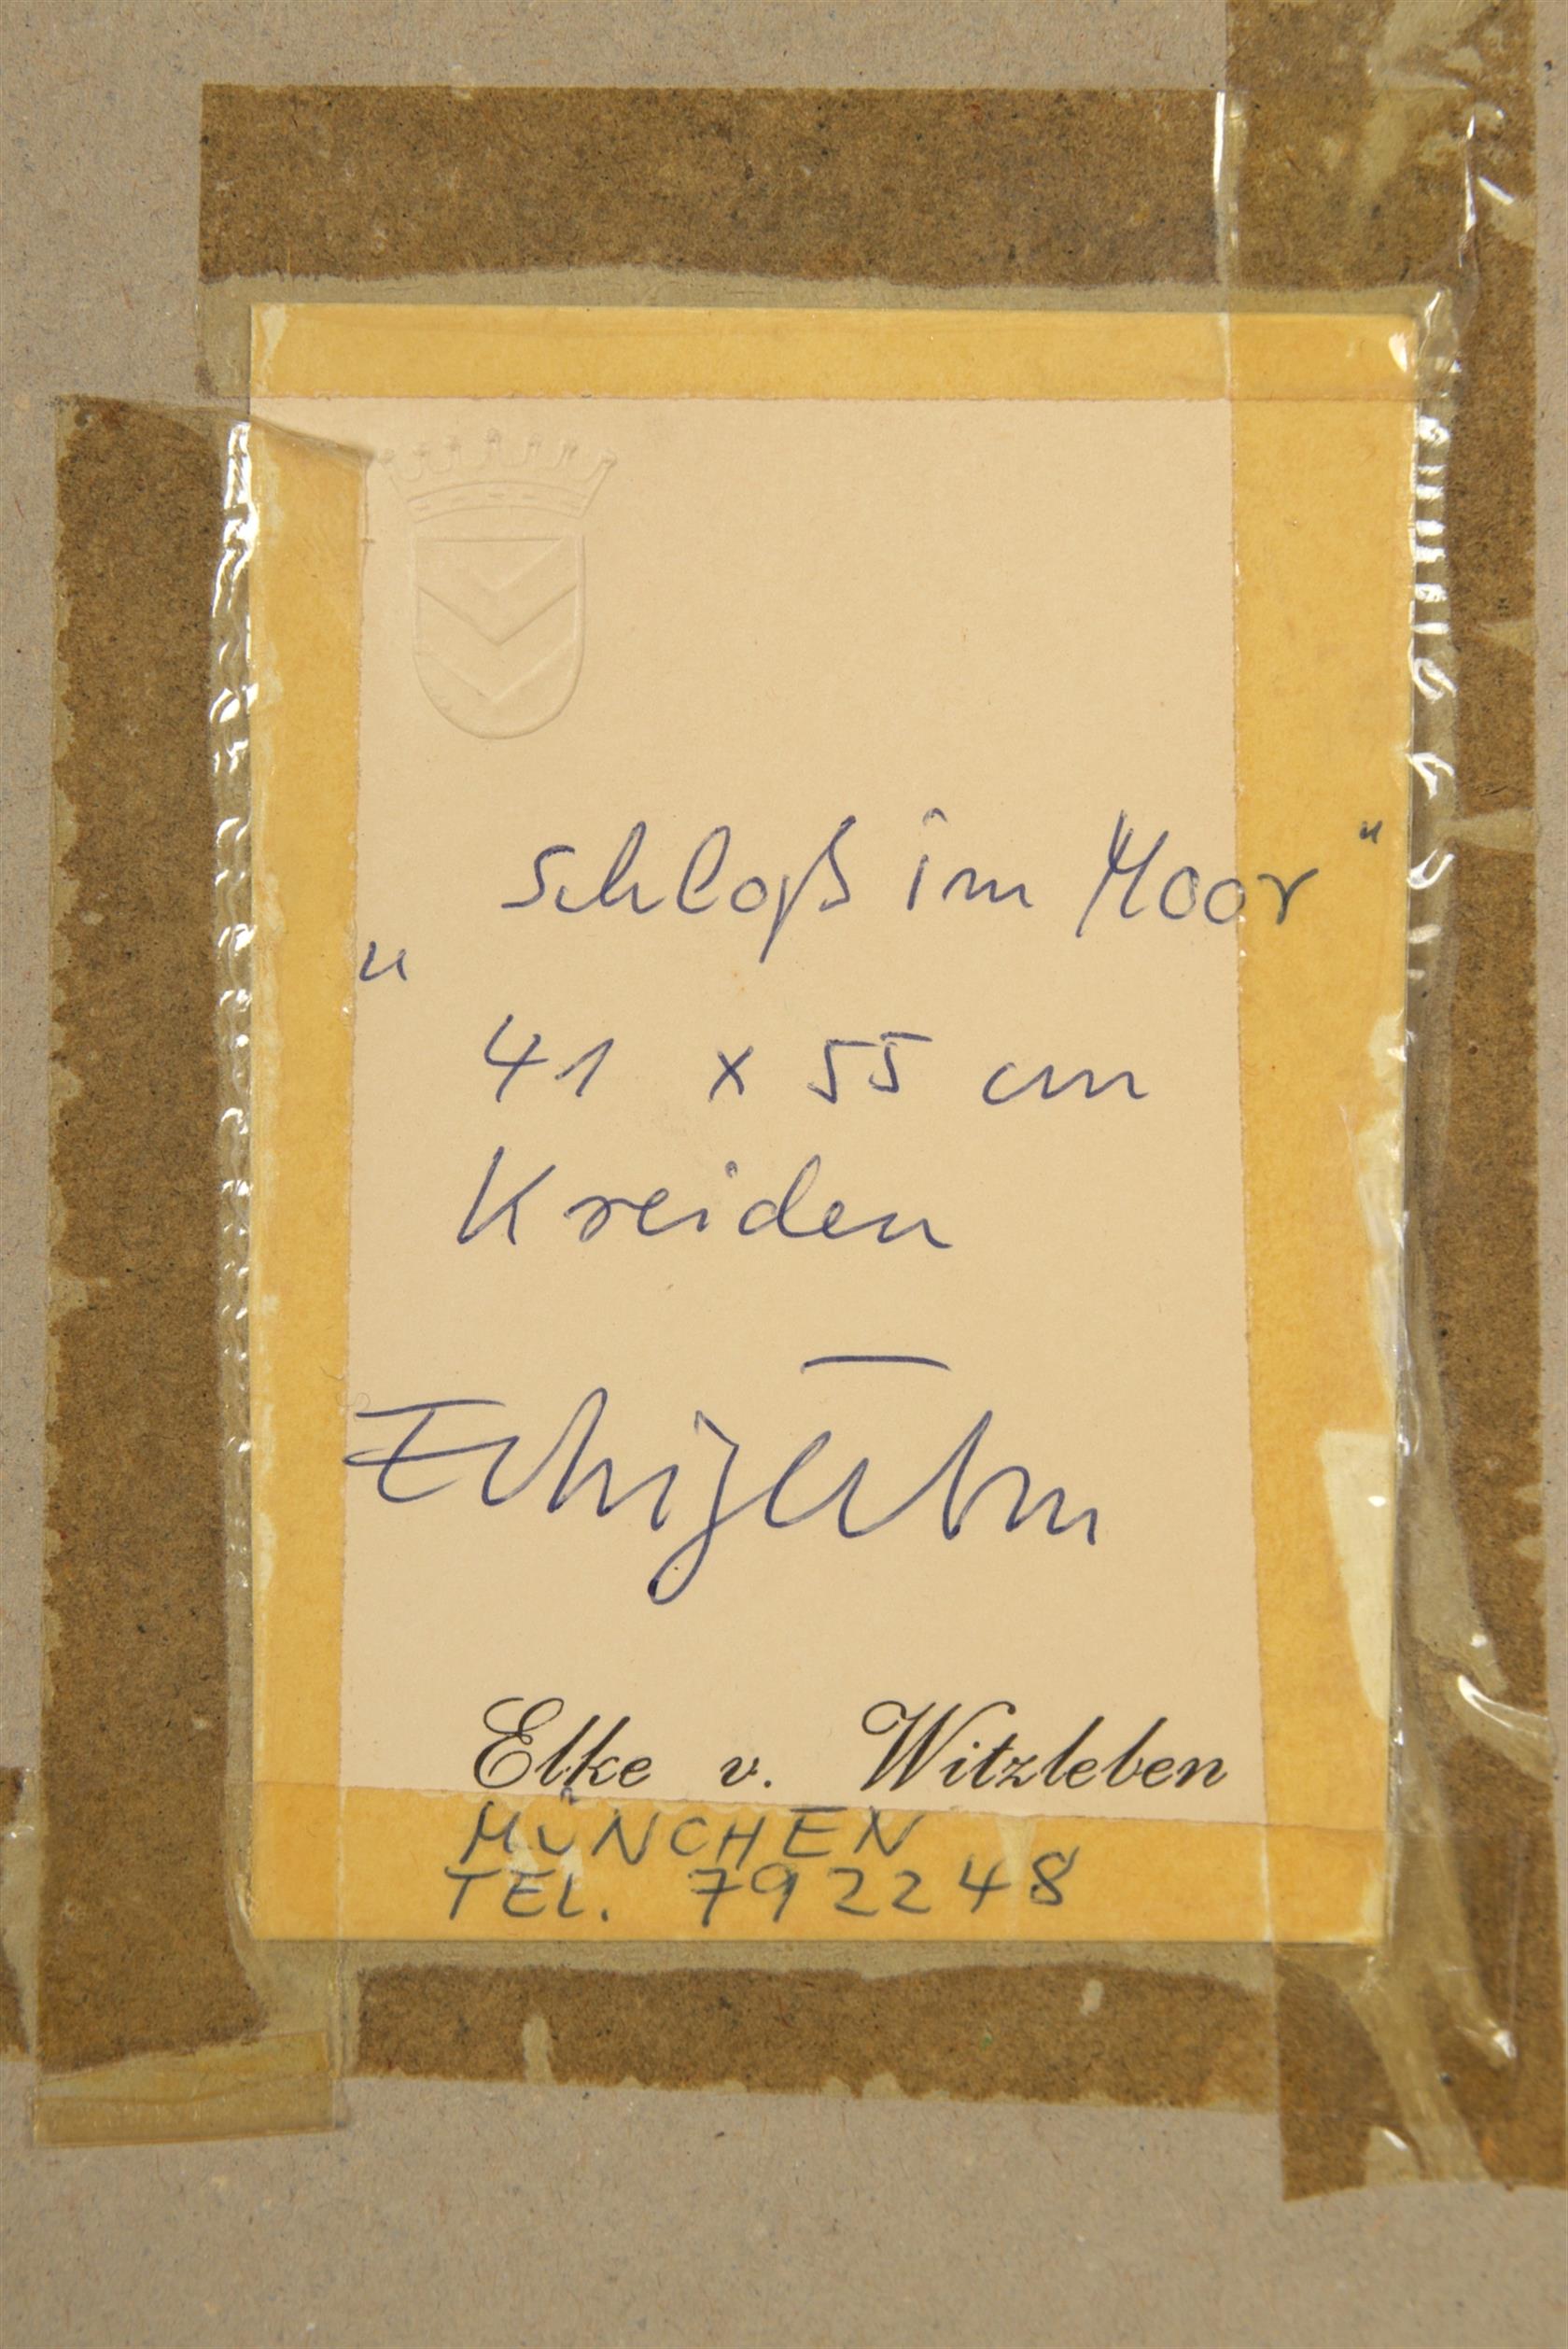 „Schloß im Moor"
41 x 55 cm
Kreiden
Elke v. Witzleben
MÜNCHEN
TEL. 792248